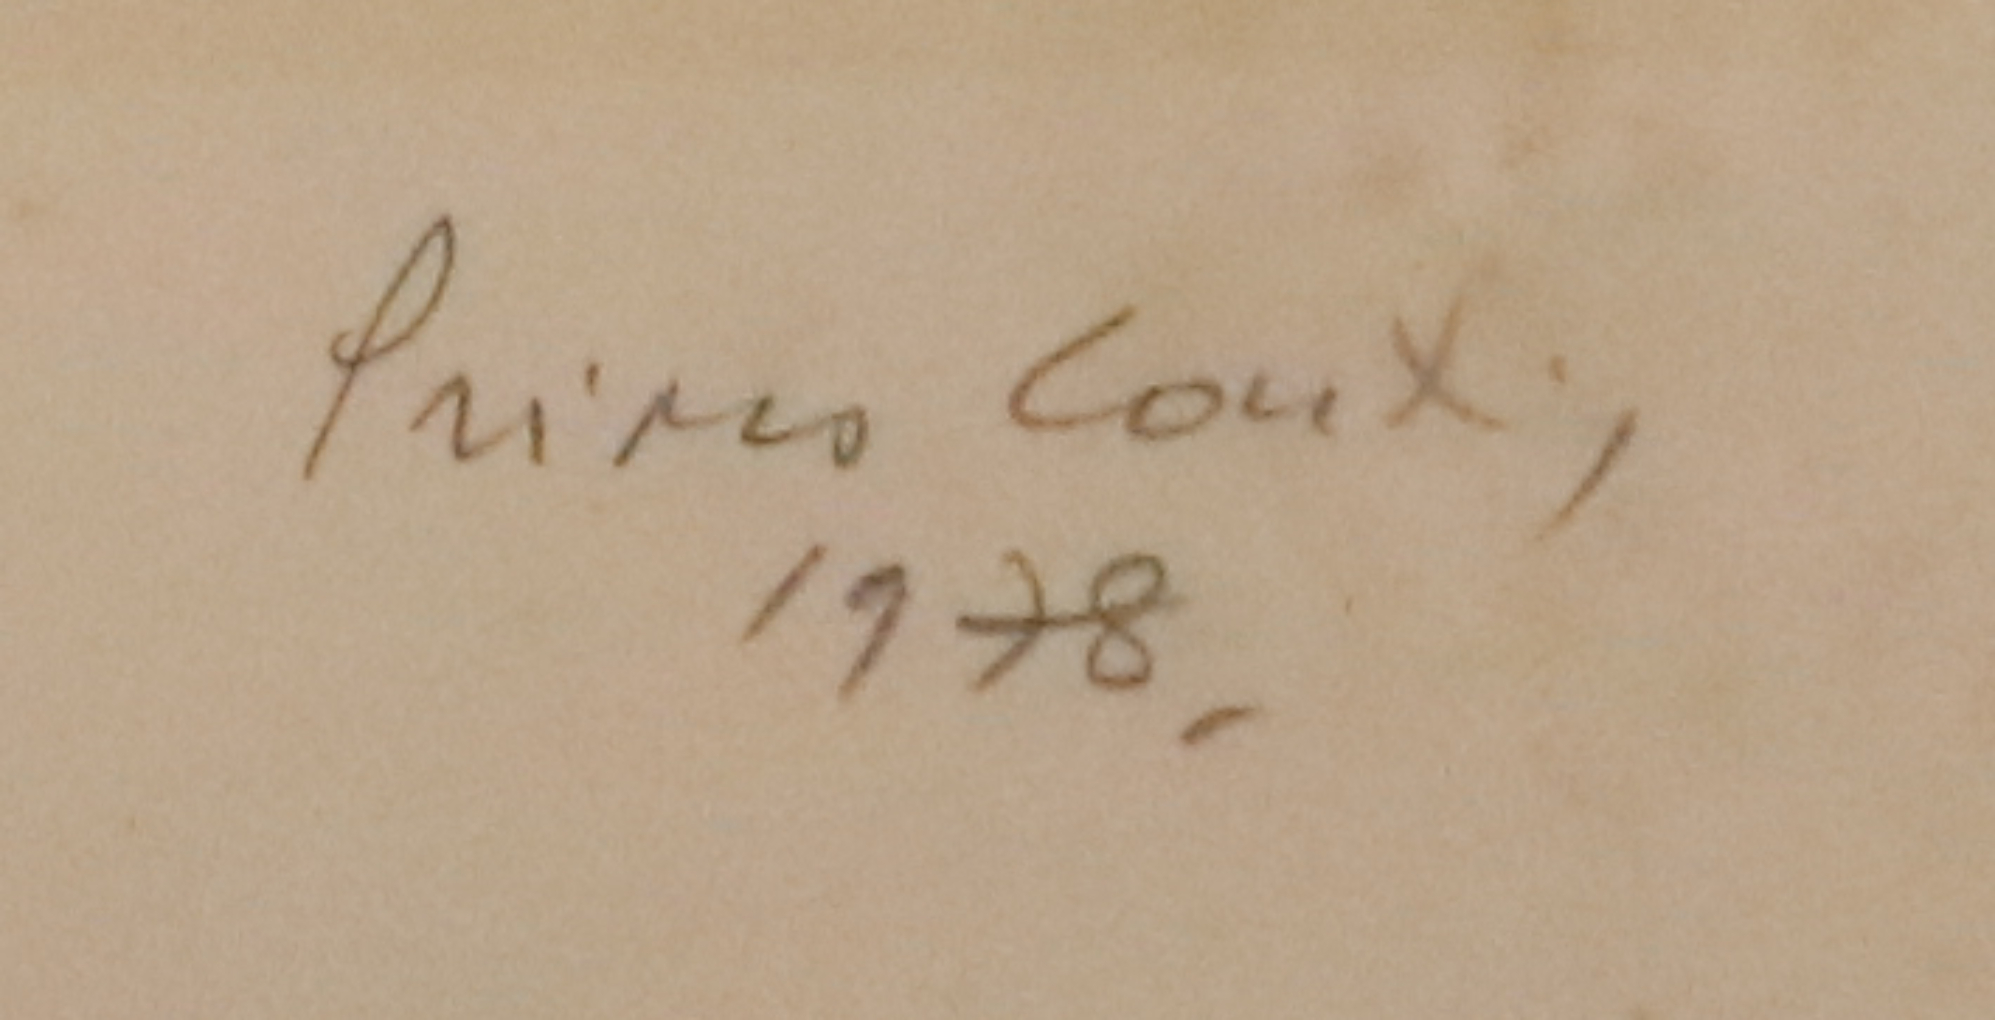 Primo Conti,
1978.